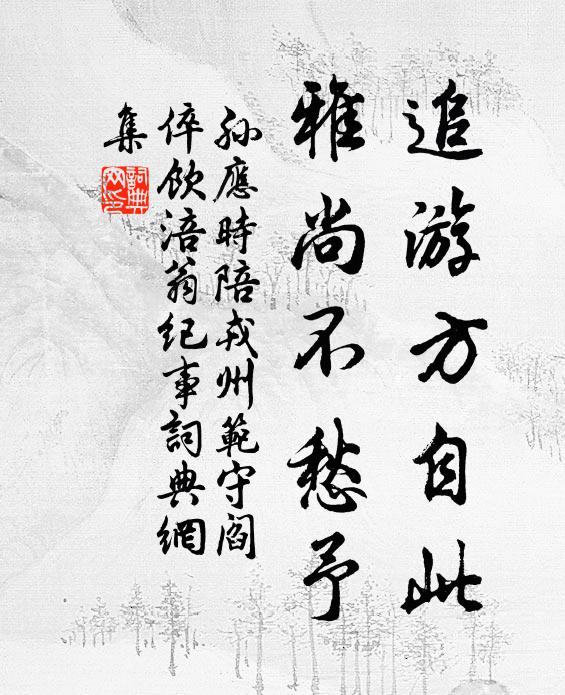 追游方自此
雅尚不愁予
孙應時陪戎州範守閻
倅飲涪翁紀事詞典網
集
詞典
网印